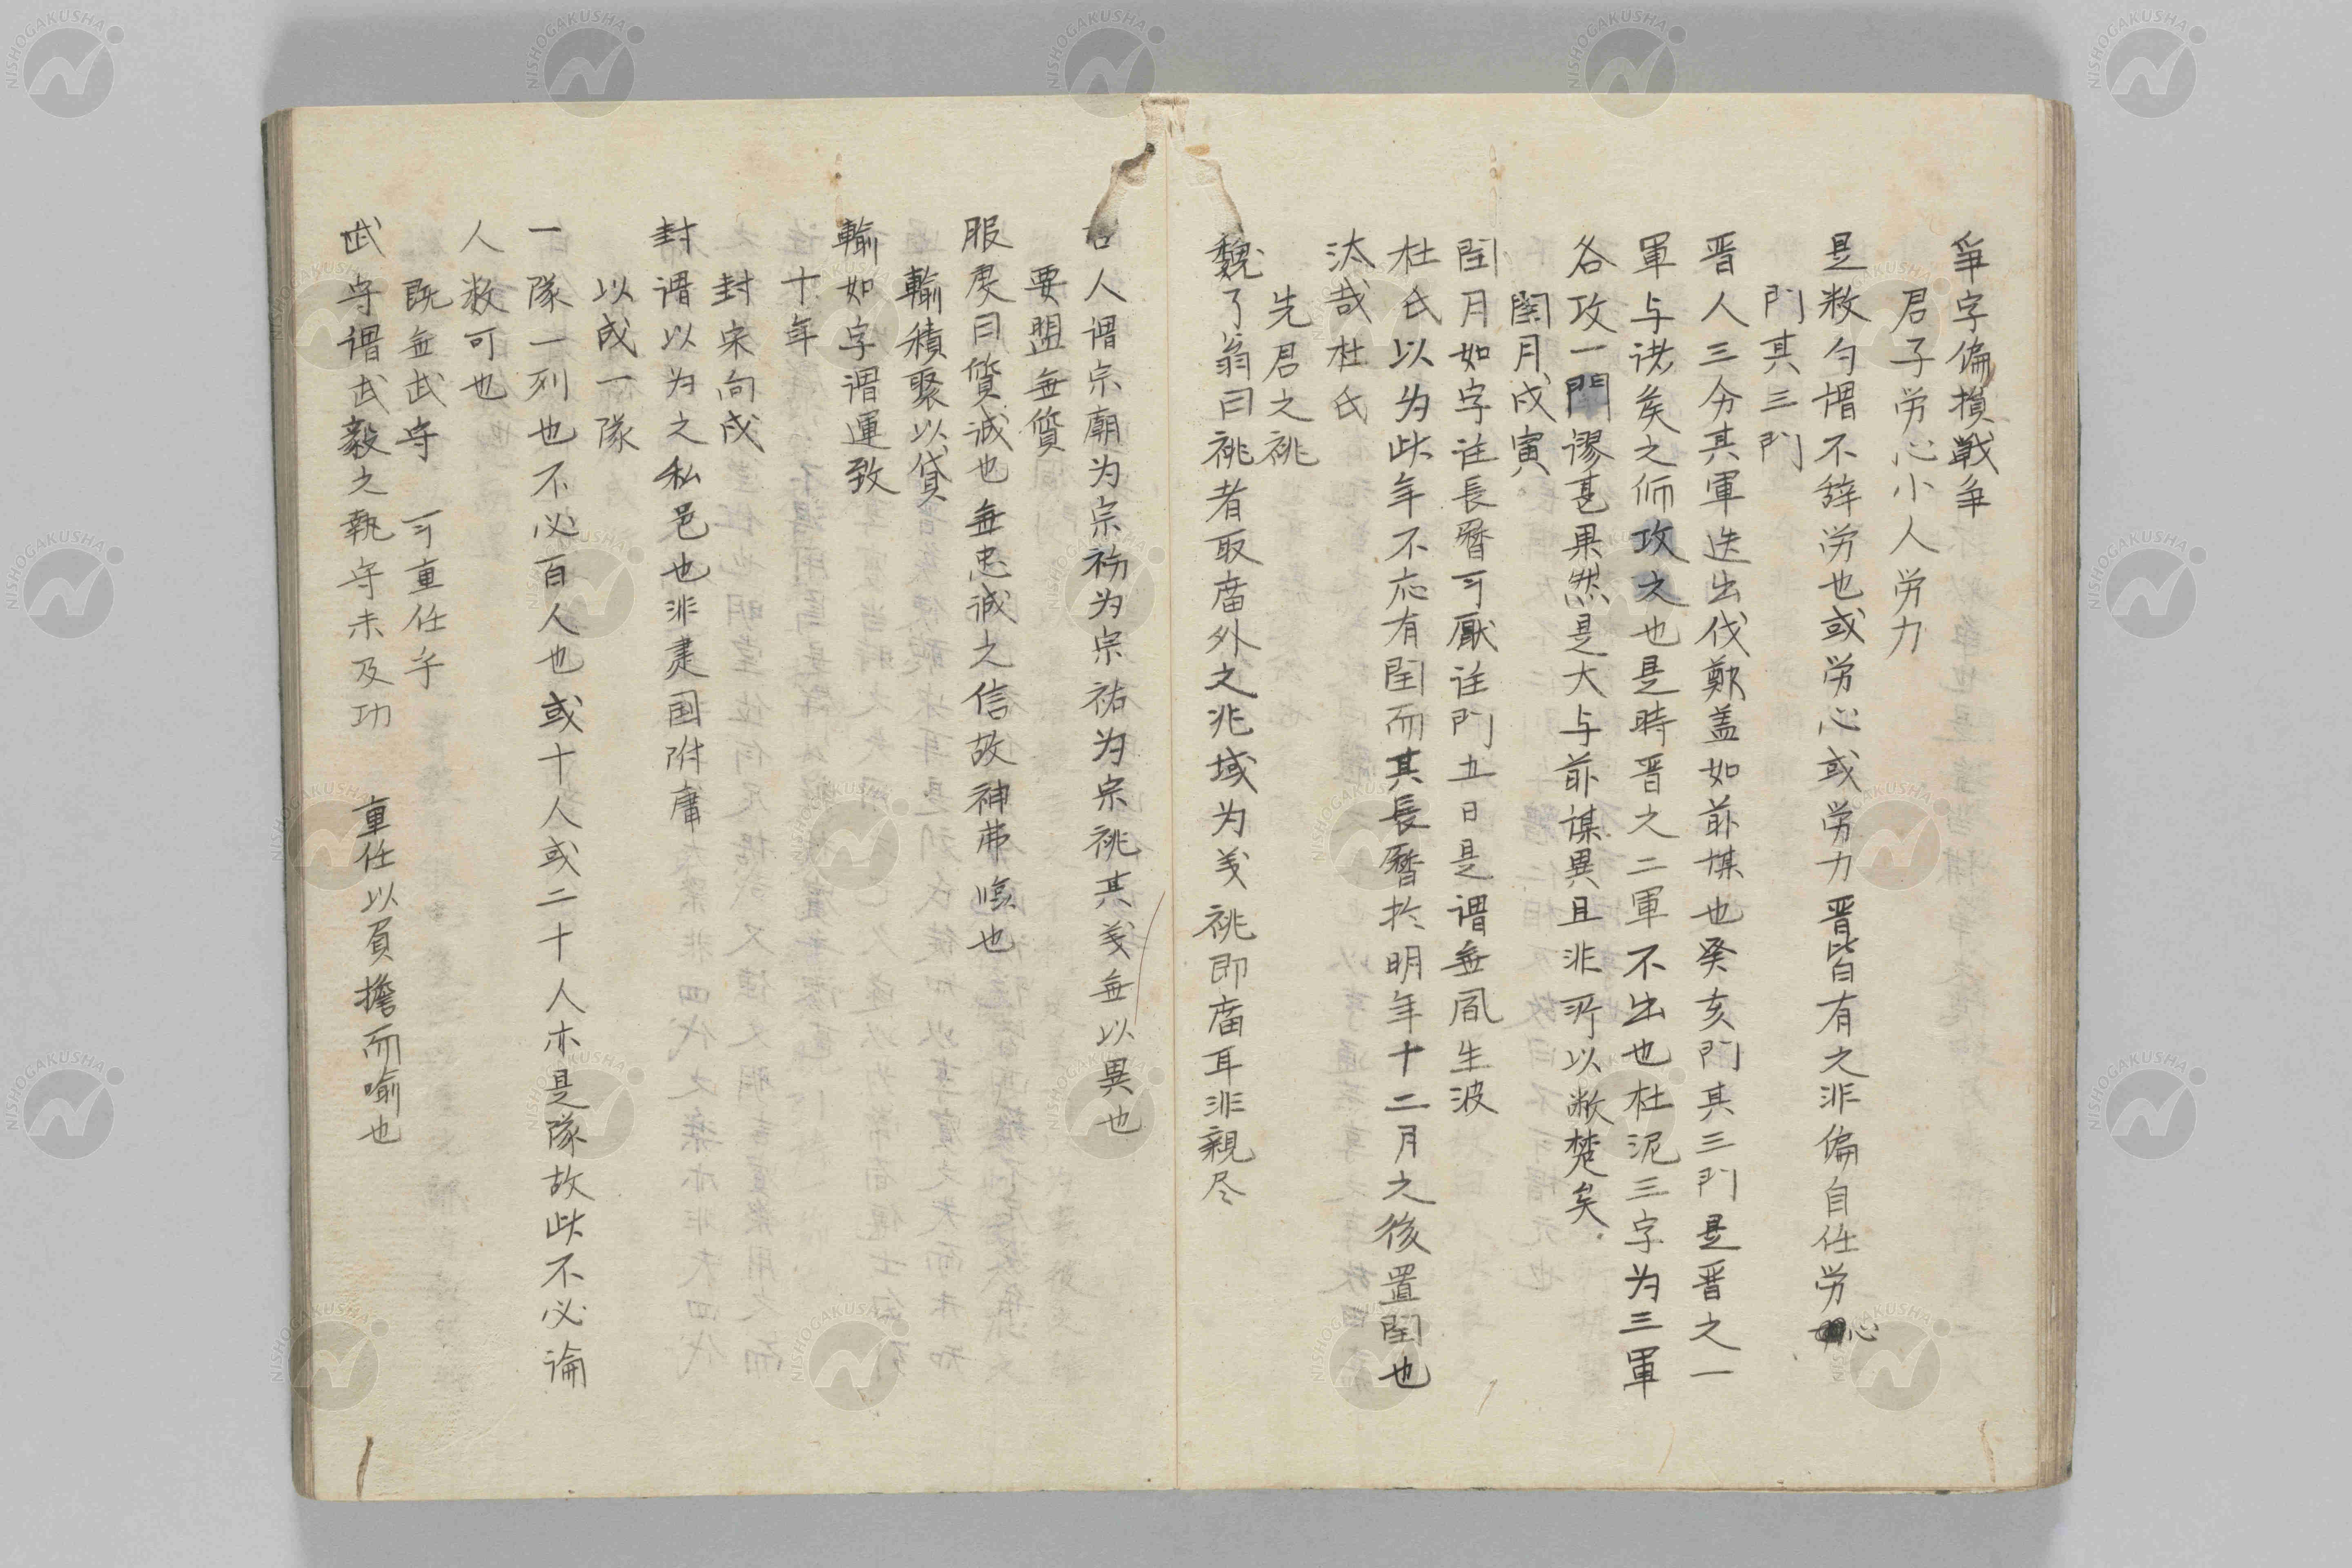 爭字偏損戦争
君子労心小人労力
是敕勾謂不辞労也或労心或労力晋皆有之非偏自任労心
門其三門
晋人三分其軍迭出伐鄭盖如前謀也癸亥門其三門是晋之一
軍与诸矦之师攻之也是時晋之二軍不出也杜泥三字为三軍
各攻一門謬甚果然是大与前謀異且非所以敝楚矣
閏月戌寅
閏月如字注長暦可厭注門五日是謂無風生波
杜氏以为此年不応有閏而其長暦扵明年十二月之後置閏也
汰哉杜氏
先君之祧
魏了翁曰祧者取庿外之兆域为义祧即庿耳非親尽
古人谓宗廟为宗祊为宗祐为宗祧其义無以異也
要盟無質
服虔曰質诚也無忠诚之信故神弗临也
輸積聚以貸
輸如字谓運致
十年
封宋向戌
封谓以为之私邑也非建国附庸
以成一隊
一隊一列也不必百人也或十人或二十人亦是隊故此不必論
人敕可也
既無武守 可重任乎
武守謂武毅之執守未及功 重任以負擔而喻也
NISHOGAKUSHA